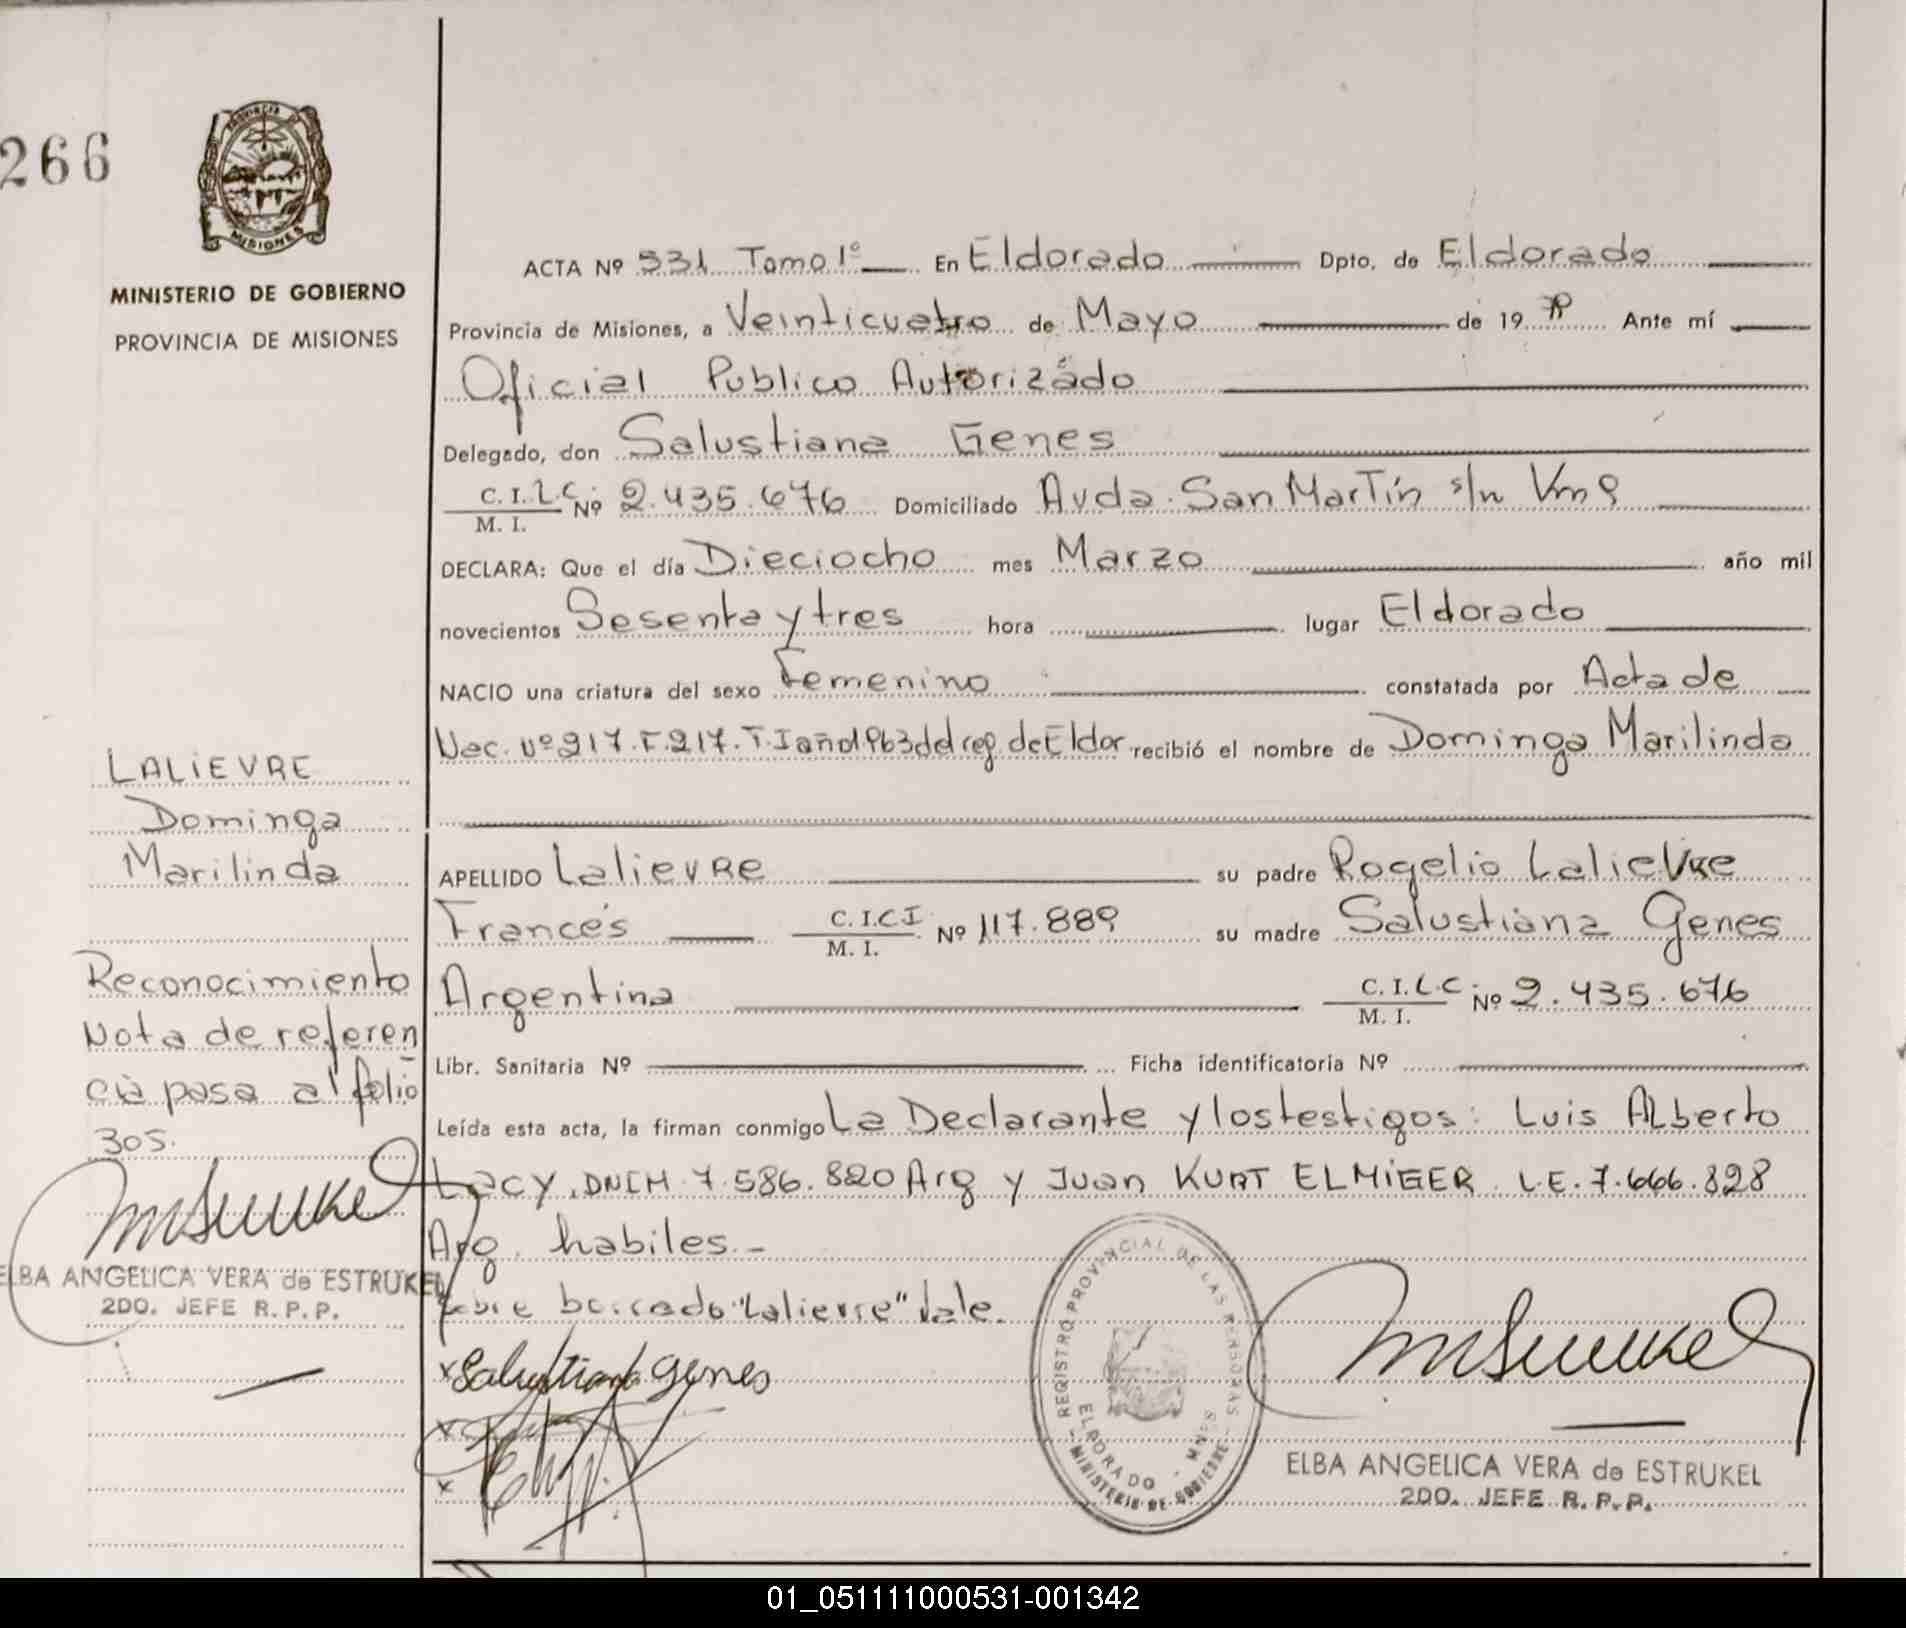 266
PROVINCIA DE
MISIONES
MINISTERIO DE GOBIERNO
PROVINCIA DE MISIONES
ACTA Nº 531 Tomo 1º En Eldorado Dpto. de Eldorado
Provincia de Misiones, a Veinticuatro de Mayo de 19 Ante mí
Oficial Publico Autorizádo
Delegado, don Salustiana Genes
C. I. L.C. Nº 2.435.676 Domiciliado Avda. San Martín s/n Km 9
M. I.
DECLARA: Que el día Dieciocho mes Marzo año mil
novecientos Sesenta y tres hora lugar Eldorado
NACIO una criatura del sexo Femenino constatada por Acta de
Nac. Nº 217. F. 217. T. I año 1963 del reg. de Eldor. recibió el nombre de Dominga Marilinda
APELLIDO Lalievre su padre Rogelio Lalievre
Francés C. I. C I Nº 117.889 su madre Salustiana Genes
M. I.
Argentina C. I. L.C Nº 2.435.676
M. I.
Libr. Sanitaria Nº Ficha identificatoria Nº
Leída esta acta, la firman conmigo La Declarante y los testigos: Luis Alberto
Lacy. DNIM 7.586.820 Arg y Juan KURT ELMIGER L.E. 7.666.828
Arg. habiles.-
Sobre borrado "Lalievre" Vale.
x Salustiana Genes
x
x
LALIEVRE
Dominga
Marilinda
Reconocimiento
Nota de referen
cia pasa al folio
305.
ELBA ANGELICA VERA de ESTRUKEL
2DO. JEFE R. P. P.
REGISTRO PROVINCIAL DE LAS PERSONAS
ELDORADO - MNES
MINISTERIO DE GOBIERNO
ELBA ANGELICA VERA de ESTRUKEL
2DO. JEFE R. P. P.
01_051111000531-001342